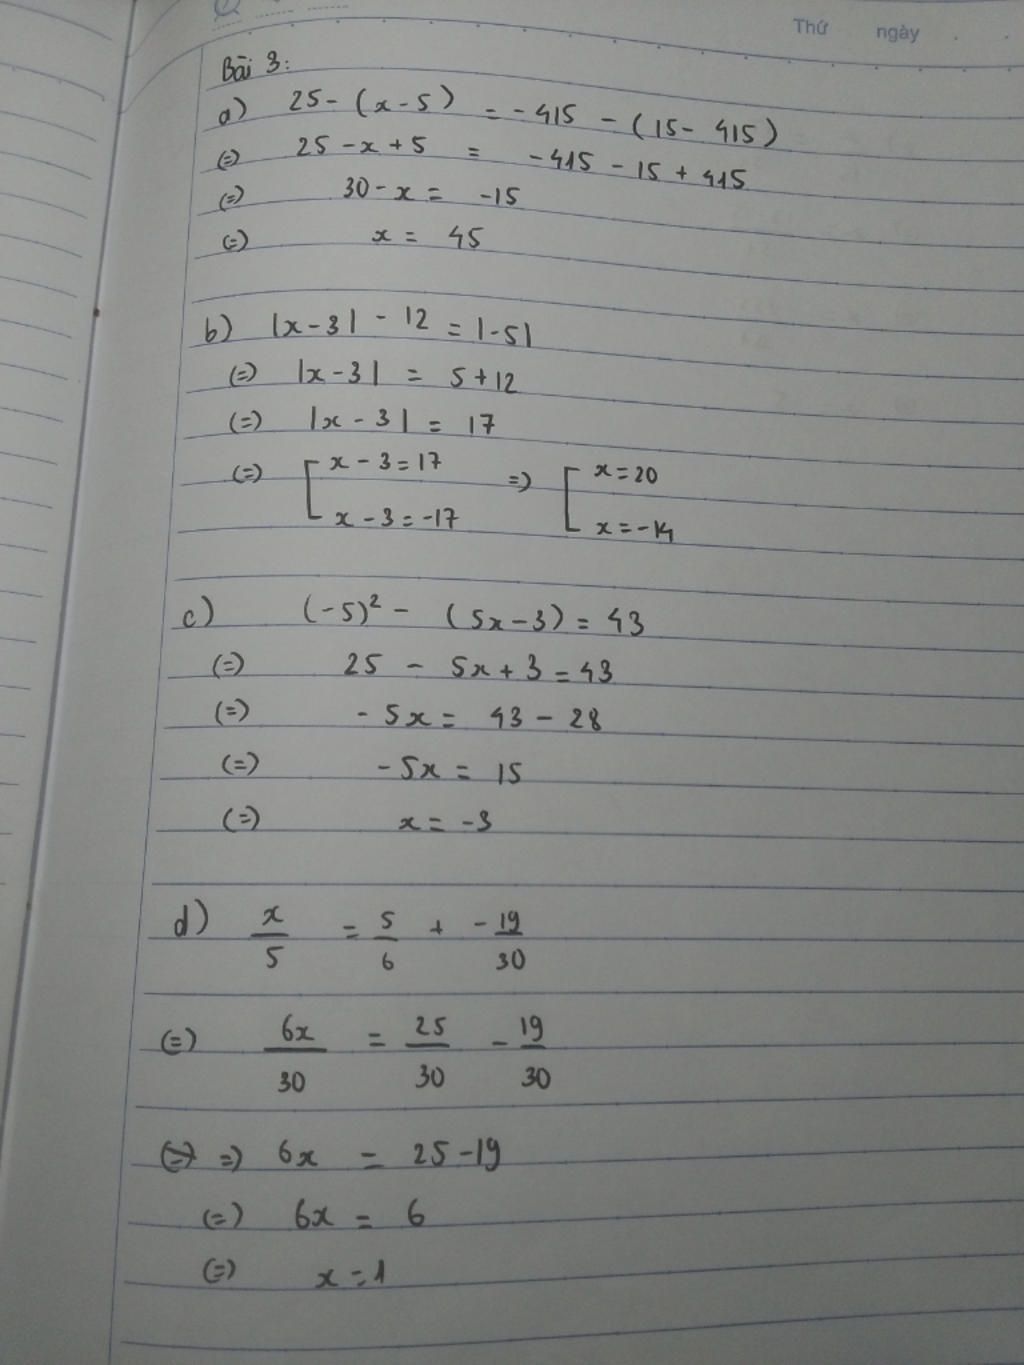 Thứ ngày
Bài 3:
a) 25 - (x - 5) = - 415 - (15 - 415)
(=) 25 - x + 5 = - 415 - 15 + 415
(=) 30 - x = - 15
(=) x = 45
b) |x - 3| - 12 = |-5|
(=) |x - 3| = 5 + 12
(=) |x - 3| = 17
(=) [ x - 3 = 17 => [ x = 20
x - 3 = -17 x = -14
c) (-5)² - (5x - 3) = 43
(=) 25 - 5x + 3 = 43
(=) - 5x = 43 - 28
(=) - 5x = 15
(=) x = -3
d) x/5 = 5/6 + - 19/30
(=) 6x/30 = 25/30 - 19/30
=) 6x = 25 - 19
(=) 6x = 6
(=) x = 1